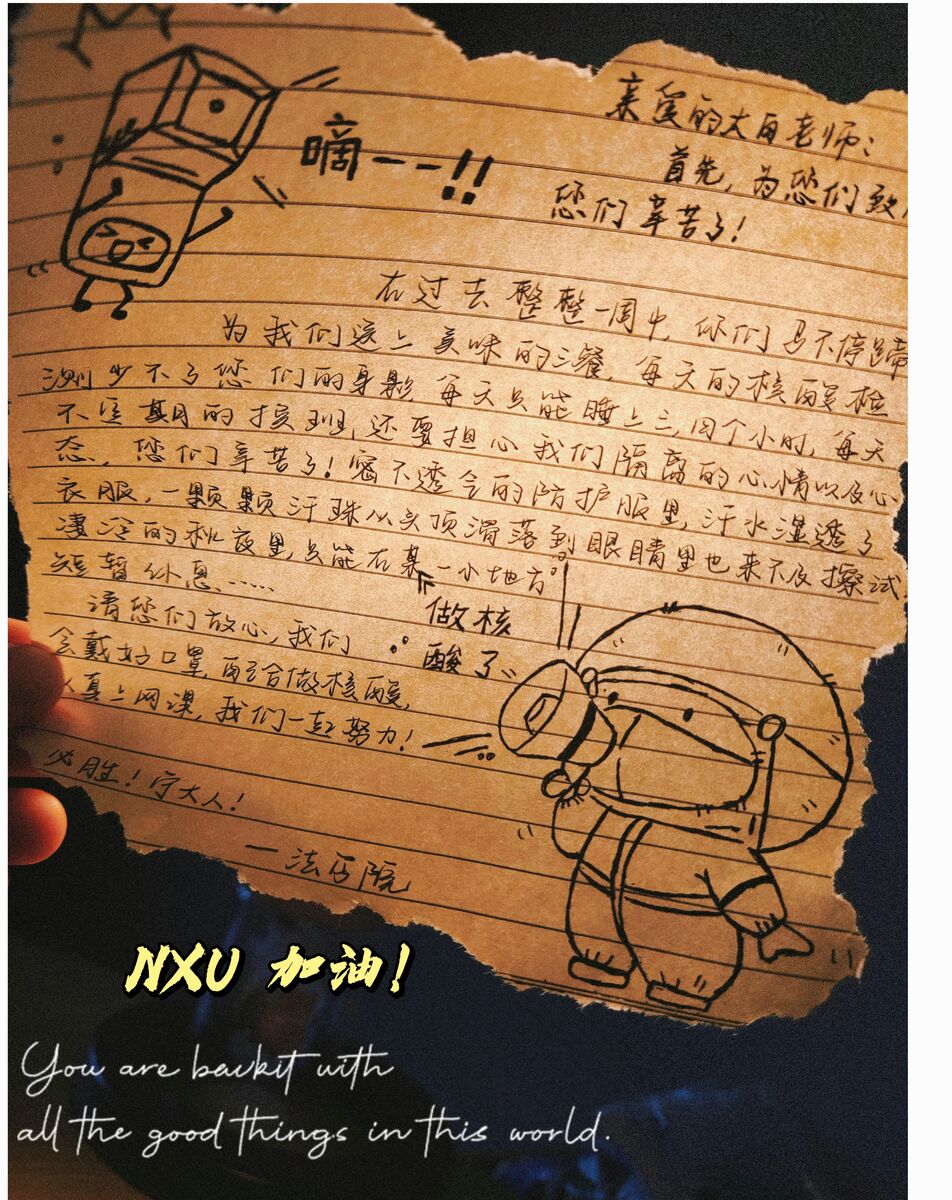 嘀——!!
亲爱的大白老师：
首先，为您们致
您们辛苦了！
在过去整整一周中，你们马不停蹄
为我们送上美味的三餐，每天的核酸检
测少不了您们的身影每天只能睡上三，四个小时，每天
不定期的接班，还要担心我们隔离的心情以及心
态，您们辛苦了！密不透气的防护服里，汗水湿透了
衣服，一颗颗汗珠从头顶滑落到眼睛里也来不及擦试
凄冷的秋夜里，只能在某一小地方
短暂休息……
请您们放心，我们
会戴好口罩，配合做核酸，
认真上网课，我们一起努力！
做核
酸了
必胜！宁大人！
—法学院
NXU 加油！
You are backit with
all the good things in this world.